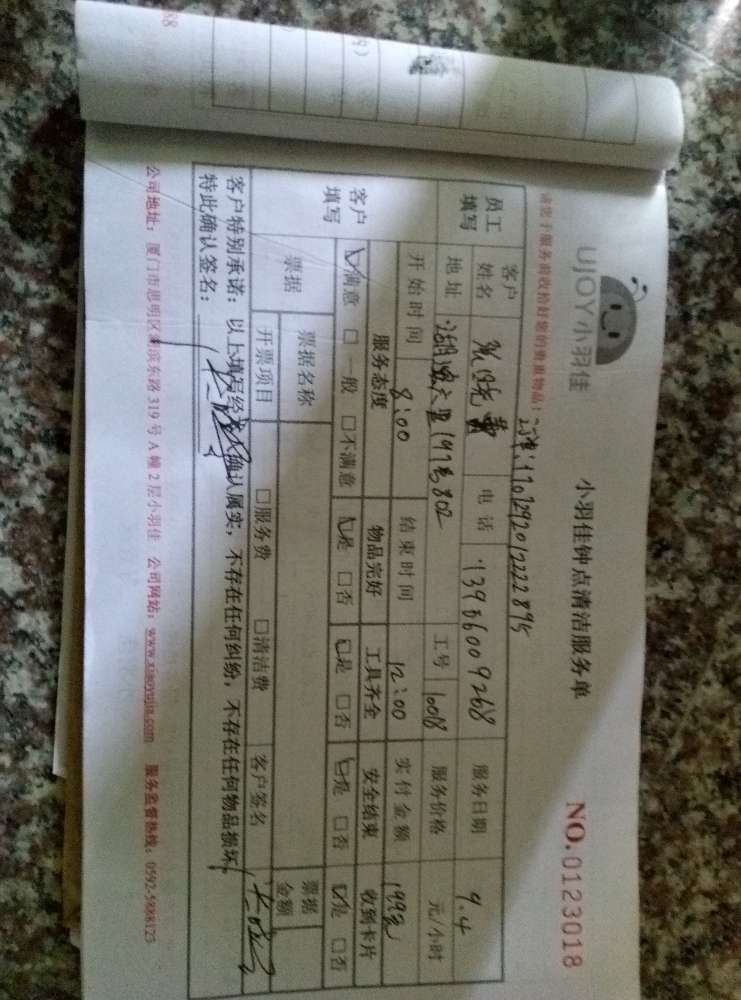 UJOY小羽佳
小羽佳钟点清洁服务单
NO.0123018
请您于服务前收拾好您的贵重物品!
170729201222895
员工填写
客户姓名
晓
电话
13956009268
服务日期
9.4
地址
六里197号802
工号
10018
服务价格
元/小时
开始时间
8:00
结束时间
12:00
实付金额
199元
客户填写
服务态度
物品完好
工具齐全
安全结束
收到卡片
☑满意 □一般 □不满意
☑是 □否
☑是 □否
☑是 □否
☑是 □否
票据
票据名称
票据金额
开票项目
□服务费 □清洁费
客户签名
客户特别承诺:以上填写经本人确认属实,不存在任何纠纷,不存在任何物品损坏,
特此确认签名:
公司地址:厦门市思明区湖滨东路 319 号 A 幢 2 层小羽佳 公司网站:www.xiaoyujia.com 服务监督热线:0592-5988123